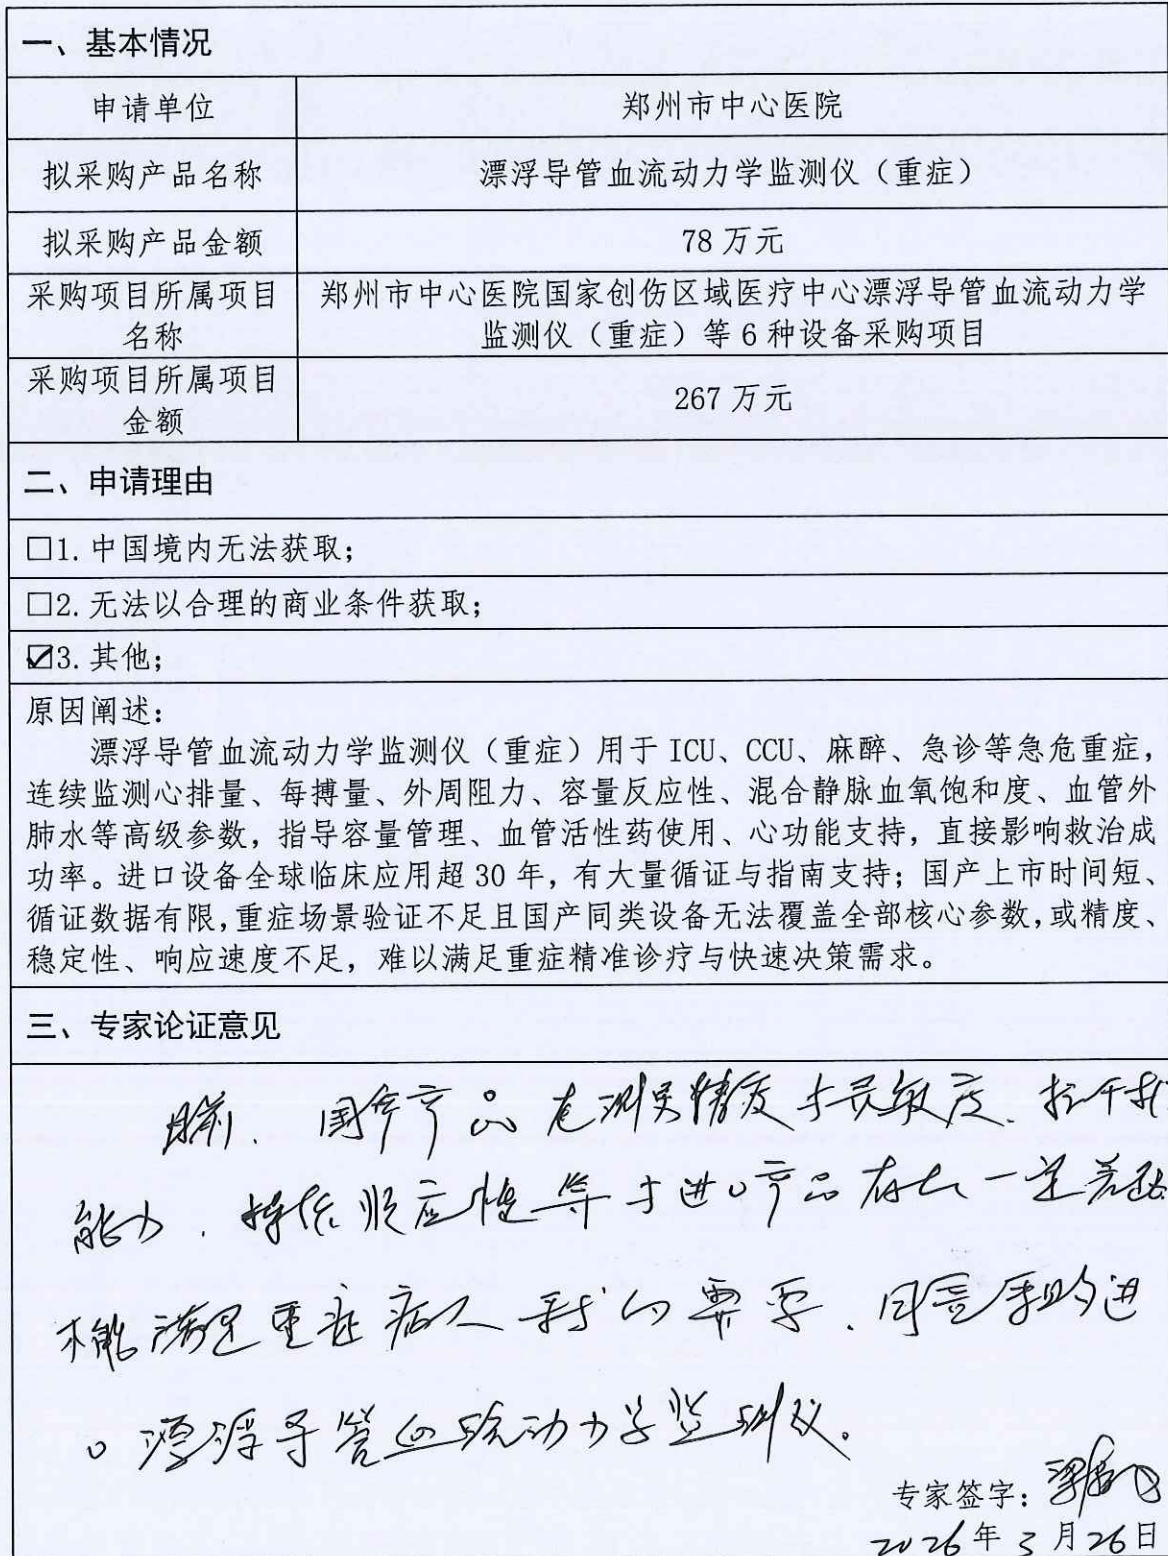 一、基本情况
申请单位
郑州市中心医院
拟采购产品名称
漂浮导管血流动力学监测仪（重症）
拟采购产品金额
78 万元
采购项目所属项目
名称
郑州市中心医院国家创伤区域医疗中心漂浮导管血流动力学
监测仪（重症）等 6 种设备采购项目
采购项目所属项目
金额
267 万元
二、申请理由
□1. 中国境内无法获取；
□2. 无法以合理的商业条件获取；
☑3. 其他；
原因阐述：
漂浮导管血流动力学监测仪（重症）用于 ICU、CCU、麻醉、急诊等急危重症，
连续监测心排量、每搏量、外周阻力、容量反应性、混合静脉血氧饱和度、血管外
肺水等高级参数，指导容量管理、血管活性药使用、心功能支持，直接影响救治成
功率。进口设备全球临床应用超 30 年，有大量循证与指南支持；国产上市时间短、
循证数据有限，重症场景验证不足且国产同类设备无法覆盖全部核心参数，或精度、
稳定性、响应速度不足，难以满足重症精准诊疗与快速决策需求。
三、专家论证意见
目前、国产产品在测量精度与灵敏度、抗干扰
能力、顺应性等与进口产品存在一定差距
不能满足重症病人的需要、同意采购进
口漂浮导管血流动力学监测仪。
专家签字：
2026年3月26日